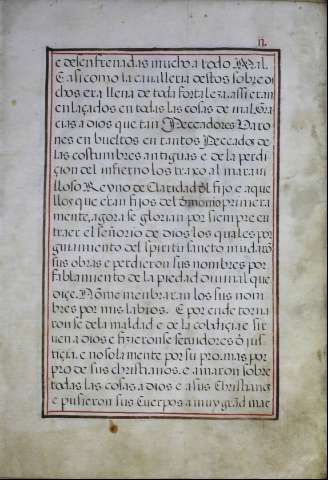 n.
e desenfrenadas mucho a todo Mal.
E asi como la cavalleria destos sobre di
chos era llena de toda fortaleza. assi eran
enlaçados en todas las cosas de mal, Gra
cias a dios que tan Peccadores Varo
nes en bueltos en tantos Peccados de
las costumbres antiguas e de la perdi
çion del infierno los traxo al marau
lloso Reyno de Claridad đl fijo e aque
llos que eran fijos del đmonio primera
mente, agora se glorian por siempre en
traer el señorio de dios los quales por
guiamiento del spiritu sancto mudarō
sus obras e perdieron sus nombres por
fablamiento de la piedad diuinal que
diçe. Nōme membraran los sus nom
bres por mis labros. E por ende torna
ronse de la maldad e de la cobdiçia e sir
uen a dios e fizieronse seruidores đ jus
tiçia. e no sola mente por su pro. mas por
pro de sus christianos. e amaron sobre
todas las cosas a dios e a sus Christianos
e pusieron sus Cuerpos a muy grād mar